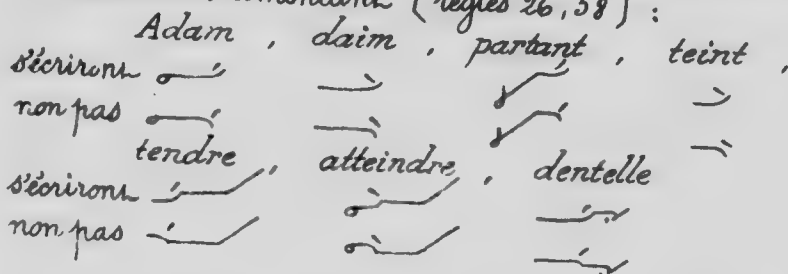 (règles 26, 58) :
Adam , daim , partant , teint ,
s'écriront
non pas
tendre , atteindre , dentelle
s'écriront
non pas